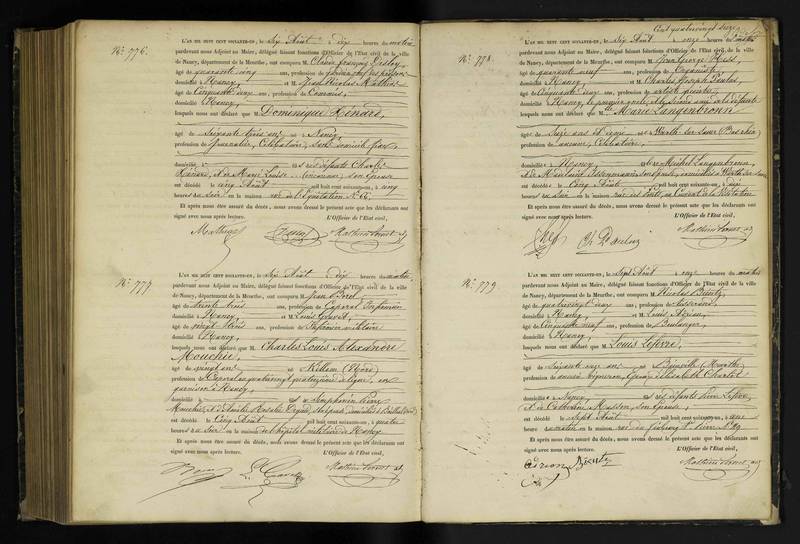 N.° 776.
L'AN MIL HUIT CENT SOIXANTE-UN, le Six Août à dix heures du matin
pardevant nous Adjoint au Maire, délégué faisant fonctions d'Officier de l'Etat civil de la ville
de Nancy, département de la Meurthe, ont comparu M. Claude François
âgé de quarante cinq ans, profession de
domicilié à Nancy et M. Jean Nicolas Mathieu
âgé de Cinquante ans, profession de
domicilié à Nancy,
lesquels nous ont déclaré que M. Dominique Hénard,
âgé de Soixante trois ans né à Nancy,
profession de Journalier, Célibataire, sans domicile fixe
domicilié à fils des défunts Charles
Hénard, et de Marie Louise son Epouse
est décédé le cinq Août mil huit cent soixante-un, à cinq
heures du soir en la maison rue de l'Equitation N.°
Et après nous être assuré du décès, nous avons dressé le présent acte que les déclarants ont
signé avec nous après lecture. L'Officier de l'Etat civil,
N.° 777
L'AN MIL HUIT CENT SOIXANTE-UN, le Six Août à dix heures du matin
pardevant nous Adjoint au Maire, délégué faisant fonctions d'Officier de l'Etat civil de la ville
de Nancy, département de la Meurthe, ont comparu M. Jean
âgé de trente trois ans, profession de Caporal Infirmier
domicilié à Nancy et M. Louis
âgé de vingt trois ans, profession de Infirmier militaire
domicilié à Nancy,
lesquels nous ont déclaré que M. Charles Louis Alexandre
Mouchié,
âgé de vingt ans né à
profession de Caporal au quatre vingt quatorzième de ligne, en
garnison à Nancy
domicilié à fils de Symphorien Pierre
Mouchié, et de Amélie Rosalie
est décédé le Cinq Août mil huit cent soixante-un, à quatre
heures du soir en la maison de l'hôpital militaire de Nancy
Et après nous être assuré du décès, nous avons dressé le présent acte que les déclarants ont
signé avec nous après lecture. L'Officier de l'Etat civil,
Cent quatre vingt seize
N.° 778
L'AN MIL HUIT CENT SOIXANTE-UN, le Six Août à onze heures du matin
pardevant nous Adjoint au Maire, délégué faisant fonctions d'Officier de l'Etat civil de la ville
de Nancy, département de la Meurthe, ont comparu M. Jean George Hess
âgé de quarante neuf ans, profession de Organiste
domicilié à Nancy et M. Charles Joseph
âgé de Cinquante ans, profession de artiste peintre
domicilié à Nancy, le premier oncle et le second ami de la défunte
lesquels nous ont déclaré que M.lle Marie Langenbronn
âgé de Seize ans et demi né à Woerth sur Sauer (Bas Rhin)
profession de aucune, Célibataire,
domicilié à Nancy fille de Michel Langenbronn,
et de Madelaine
est décédé le Cinq Août mil huit cent soixante-un, à dix
heures du soir en la maison rue des
Et après nous être assuré du décès, nous avons dressé le présent acte que les déclarants ont
signé avec nous après lecture. L'Officier de l'Etat civil,
N.° 779
L'AN MIL HUIT CENT SOIXANTE-UN, le Sept Août à onze heures du matin
pardevant nous Adjoint au Maire, délégué faisant fonctions d'Officier de l'Etat civil de la ville
de Nancy, département de la Meurthe, ont comparu M. Nicolas
âgé de quatre vingt deux ans, profession de
domicilié à Nancy et M. Louis Adrian,
âgé de Cinquante neuf ans, profession de Boulanger,
domicilié à Nancy,
lesquels nous ont déclaré que M. Louis Lefèvre,
âgé de Soixante onze ans né à (Meurthe)
profession de ancien vigneron, Epoux d'Elisabeth Charlot
domicilié à Nancy fils des défunts Lefèvre,
et de Catherine Masson, son Epouse,
est décédé le Sept Août mil huit cent soixante-un, à une
heure du matin en la maison rue du faubourg St Pierre N.°
Et après nous être assuré du décès, nous avons dressé le présent acte que les déclarants ont
signé avec nous après lecture. L'Officier de l'Etat civil,